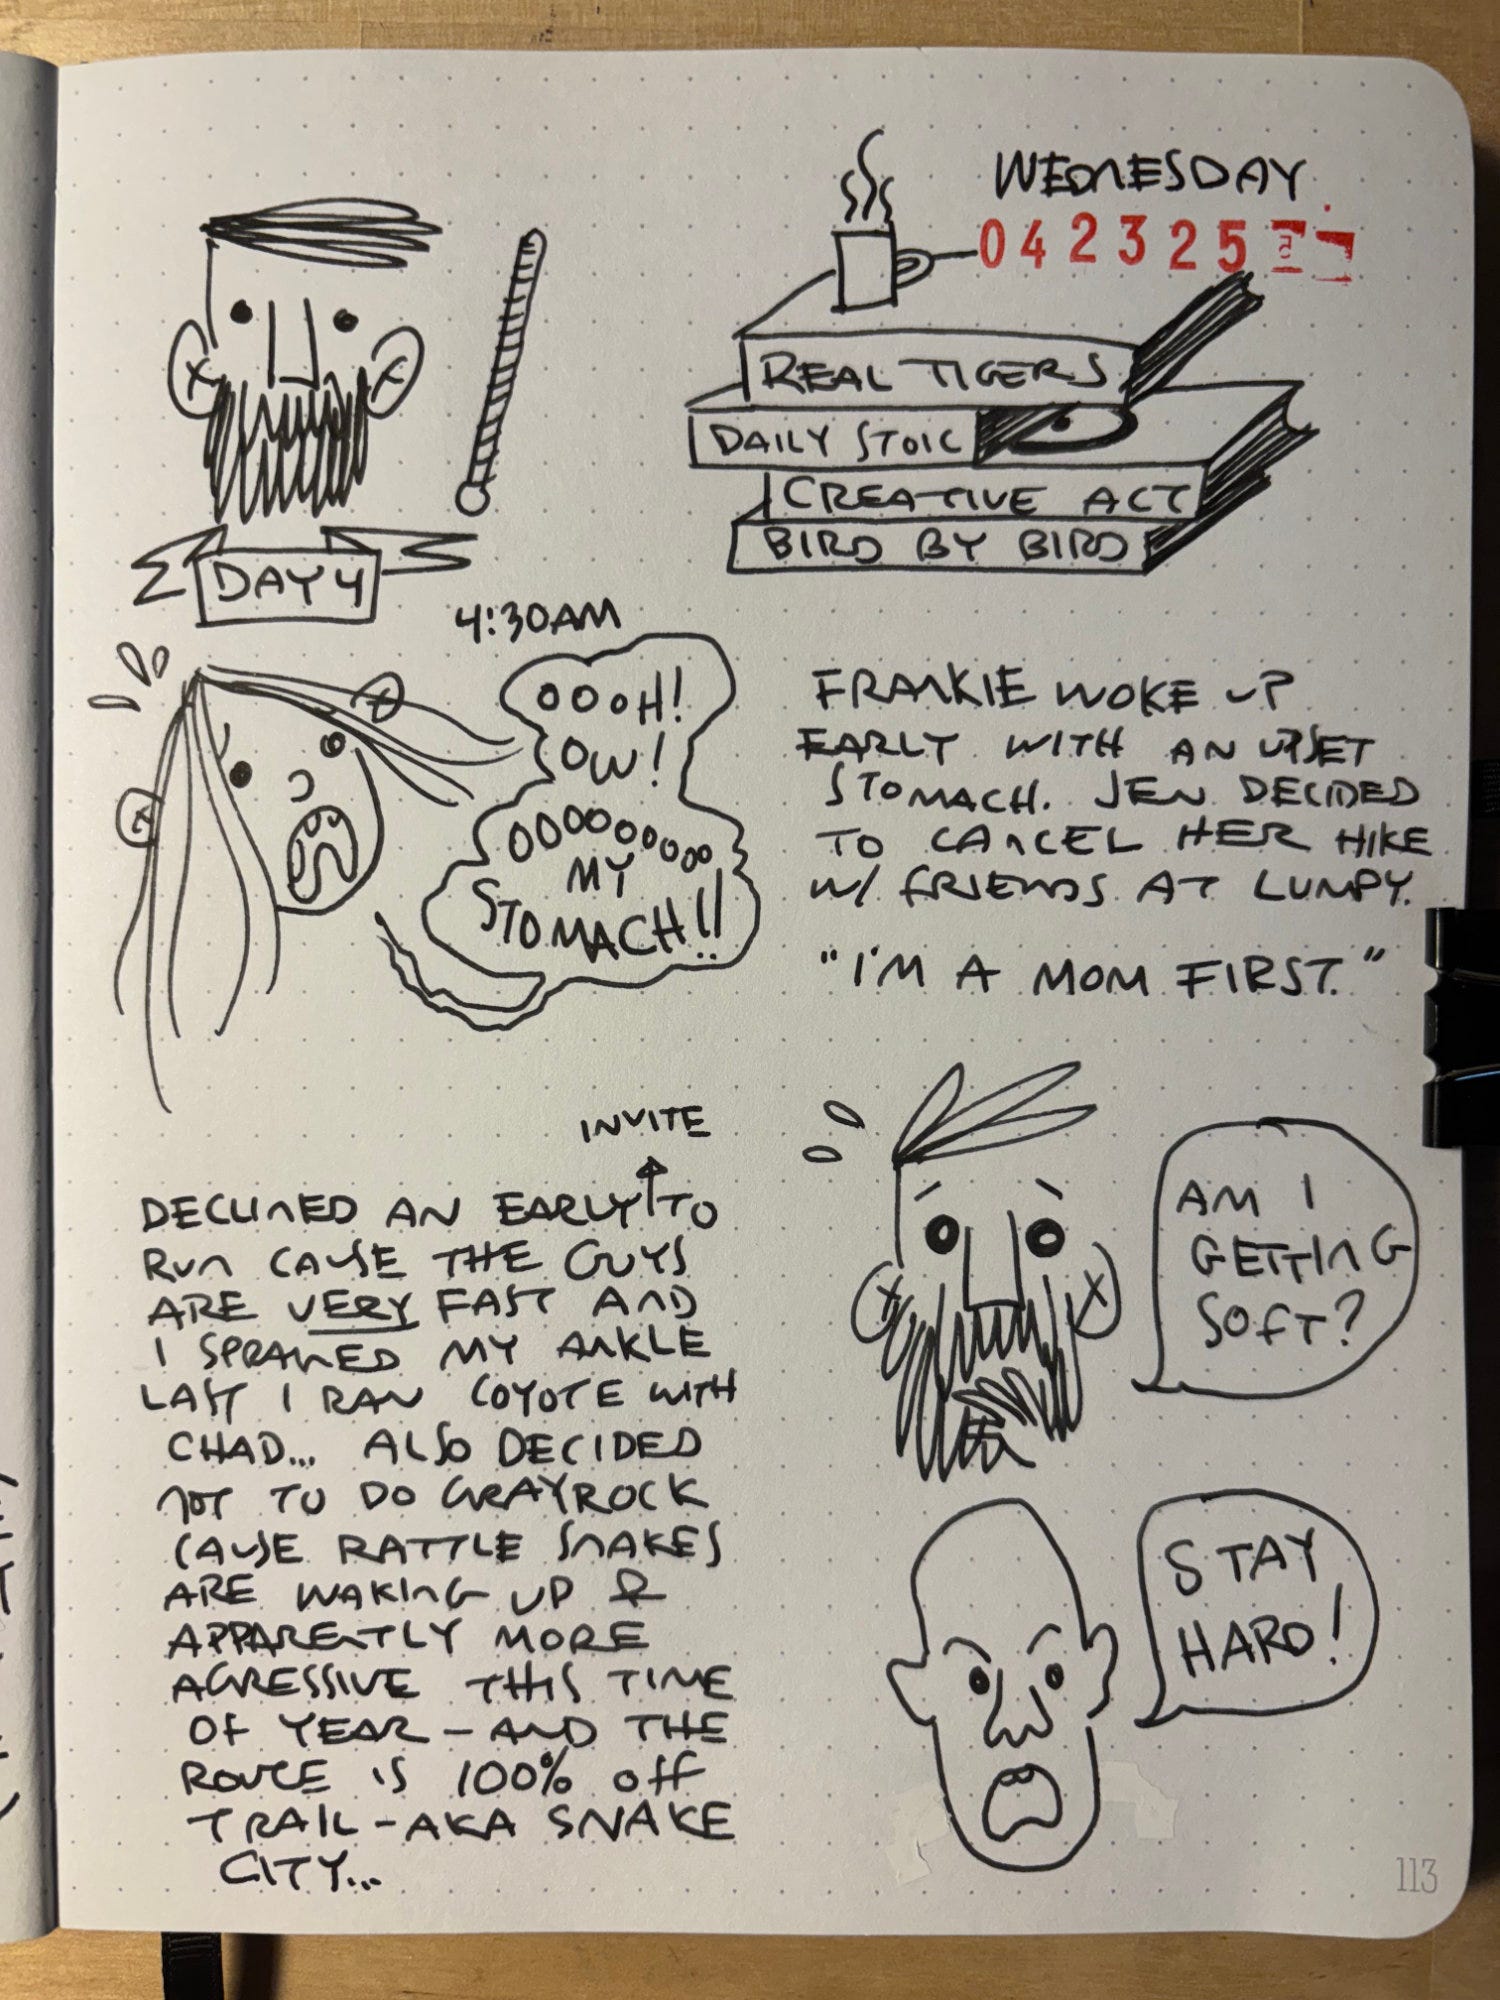 WEDNESDAY
042325
REAL TIGERS
DAILY STOIC
CREATIVE ACT
BIRD BY BIRD
DAY 4
4:30AM
OOOH!
OW!
OOOOOOOOO
MY
STOMACH!!
FRANKIE WOKE UP
EARLY WITH AN UPSET
STOMACH. JEN DECIDED
TO CANCEL HER HIKE
W/ FRIENDS AT LUMPY.
"I'M A MOM FIRST."
INVITE
DECLINED AN EARLY TO
RUN CAUSE THE GUYS
ARE VERY FAST AND
I SPRAINED MY ANKLE
LAST I RAN COYOTE WITH
CHAD... ALSO DECIDED
NOT TO DO GRAYROCK
CAUSE RATTLE SNAKES
ARE WAKING UP &
APPARENTLY MORE
AGRESSIVE THIS TIME
OF YEAR - AND THE
ROUTE IS 100% OFF
TRAIL - AKA SNAKE
CITY...
AM I
GETTING
SOFT?
STAY
HARD!
113